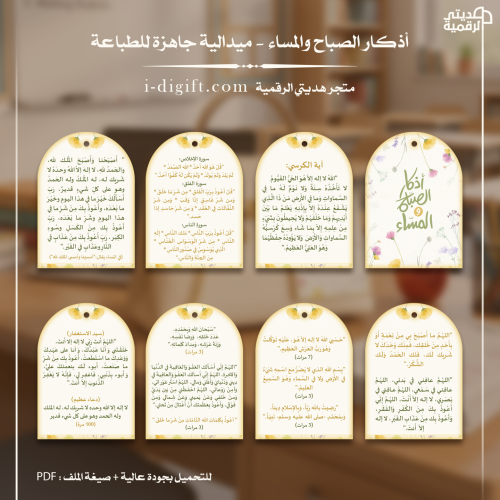 هديتي
الرقمية
أذكار الصباح والمساء - ميدالية جاهزة للطباعة
متجر هديتي الرقمية i-digift.com
أذكار
الصباح
و
المساء
آية الكرسي:
"اللهُ لا إله إلا هُو الحيُّ القيُّومُ
لا تأخُذُهُ سِنةٌ ولا نومٌ لهُ ما في
السماوات وما في الأرض من ذا الذي
يشفعُ عندهُ إلا بإذنه يعلمُ ما بين
أيديهم وما خلفهُم ولا يُحيطُون بشيءٍ
من علمه إلا بما شاء وسع كُرسيُّهُ
السماوات والأرض ولا يؤُودُهُ حفظُهُما
وهُو العليُّ العظيمُ."
سورة الإخلاص:
"قُل هُو اللهُ أحدٌ * اللهُ الصمدُ *
لم يلد ولم يُولد * ولم يكُن لهُ كُفُوًا أحدٌ."
سورة الفلق:
"قُل أعُوذُ بربِّ الفلق * من شرِّ ما خلق *
ومن شرِّ غاسقٍ إذا وقب * ومن شرِّ
النفاثات في العُقد * ومن شرِّ حاسدٍ إذا
حسد."
سورة الناس:
"قُل أعُوذُ بربِّ الناس * ملك الناس * إله
الناس * من شرِّ الوسواس الخناس *
الذي يُوسوسُ في صُدُور الناس *
من الجنة والناس."
"أصبحنا وأصبح المُلكُ لله،
والحمدُ لله، لا إله إلا اللهُ وحدهُ لا
شريك لهُ، لهُ المُلكُ ولهُ الحمدُ
وهُو على كُلِّ شيءٍ قديرٌ، ربِّ
أسألُك خير ما في هذا اليوم وخير
ما بعدهُ، وأعُوذُ بك من شرِّ ما في
هذا اليوم وشرِّ ما بعدهُ، ربِّ
أعُوذُ بك من الكسل وسُوء
الكبر، ربِّ أعُوذُ بك من عذابٍ في
النار وعذابٍ في القبر."
"اللهُم ما أصبح بي من نعمةٍ أو
بأحدٍ من خلقك، فمنك وحدك لا
شريك لك، فلك الحمدُ ولك
الشُّكرُ."
"اللهُم عافني في بدني، اللهُم
عافني في سمعي، اللهُم عافني في
بصري، لا إله إلا أنت، اللهُم إني
أعُوذُ بك من الكُفر والفقر،
وأعُوذُ بك من عذاب القبر، لا إله
إلا أنت."
"حسبي اللهُ لا إله إلا هُو، عليه توكلتُ
وهُو ربُّ العرش العظيم."
(7 مرات)
"بسم الله الذي لا يضُرُّ مع اسمه شيءٌ
في الأرض ولا في السماء وهُو السميعُ
العليمُ."
(3 مرات)
"رضيتُ بالله ربًّا، وبالإسلام دينًا،
وبمُحمدٍ صلى الله عليه وسلم نبيًّا."
(3 مرات)
"سُبحان الله وبحمده،
عدد خلقه، ورضا نفسه،
وزنة عرشه، ومداد كلماته."
(3 مرات)
"أعُوذُ بكلمات الله التامات من شرِّ ما خلق."
(3 مرات)
(سيد الاستغفار)
"اللهُم أنت ربِّي لا إله إلا أنت،
خلقتني وأنا عبدُك، وأنا على عهدك
ووعدك ما استطعتُ، أعُوذُ بك من شرِّ
ما صنعتُ، أبُوءُ لك بنعمتك عليَّ،
وأبُوءُ بذنبي، فاغفر لي، فإنهُ لا يغفرُ
الذُّنُوب إلا أنت."
(دعاء عظيم)
لا إله إلا الله وحده لا شريك له، له الملك
وله الحمد وهو على كل شيء قدير
(100 مرة)
للتحميل بجودة عالية + صيغة الملف : PDF